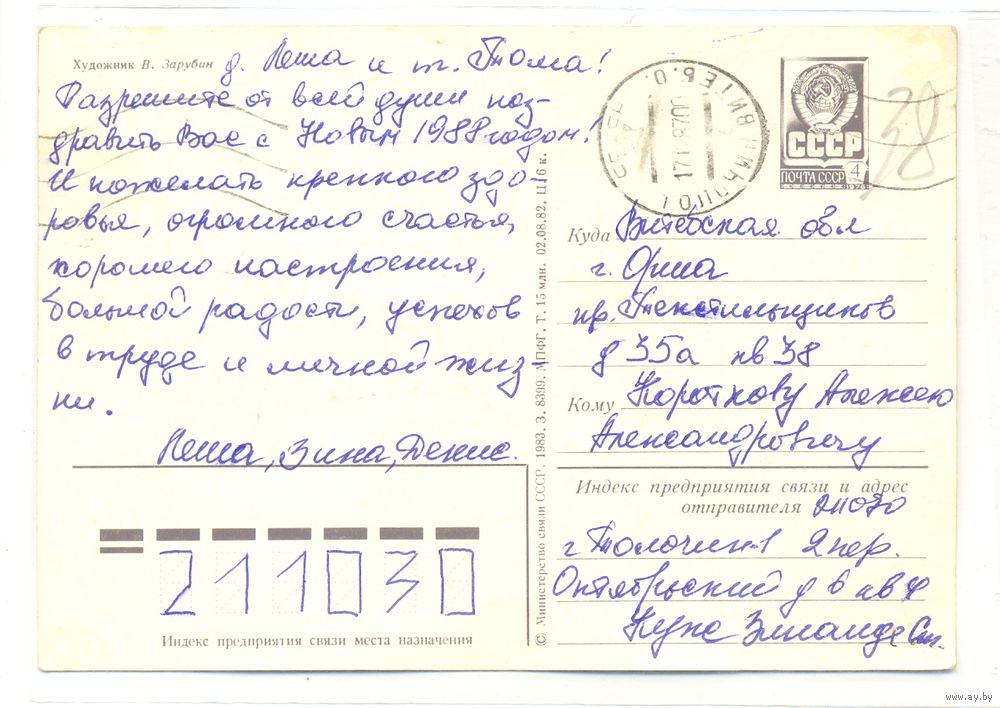 Художник В. Зарубин
д. Леша и т. Тома!
Разрешите от всей души поз-
дравить Вас с Новым 1988 годом!
И пожелать крепкого здо-
ровья, огромного счастья,
хорошего настроения,
большой радости, успехов
в труде и личной жиз-
ни.
Леша, Зина, Денис.
211030
Индекс предприятия связи места назначения
© Министерство связи СССР. 1983. З. 8399. МПФГ. Т. 15 млн. 02.08.82. Ц. 6 к.
СССР
ПОЧТА СССР 4
1976
38
Куда Витебская обл
г. Орша
пр. Текстильщиков
д 35а кв 38
Кому Короткову Алексею
Александровичу
Индекс предприятия связи и адрес
отправителя 211070
г Толочин-1 2 пер.
Октябрьский д 6 кв 4
www.ay.by